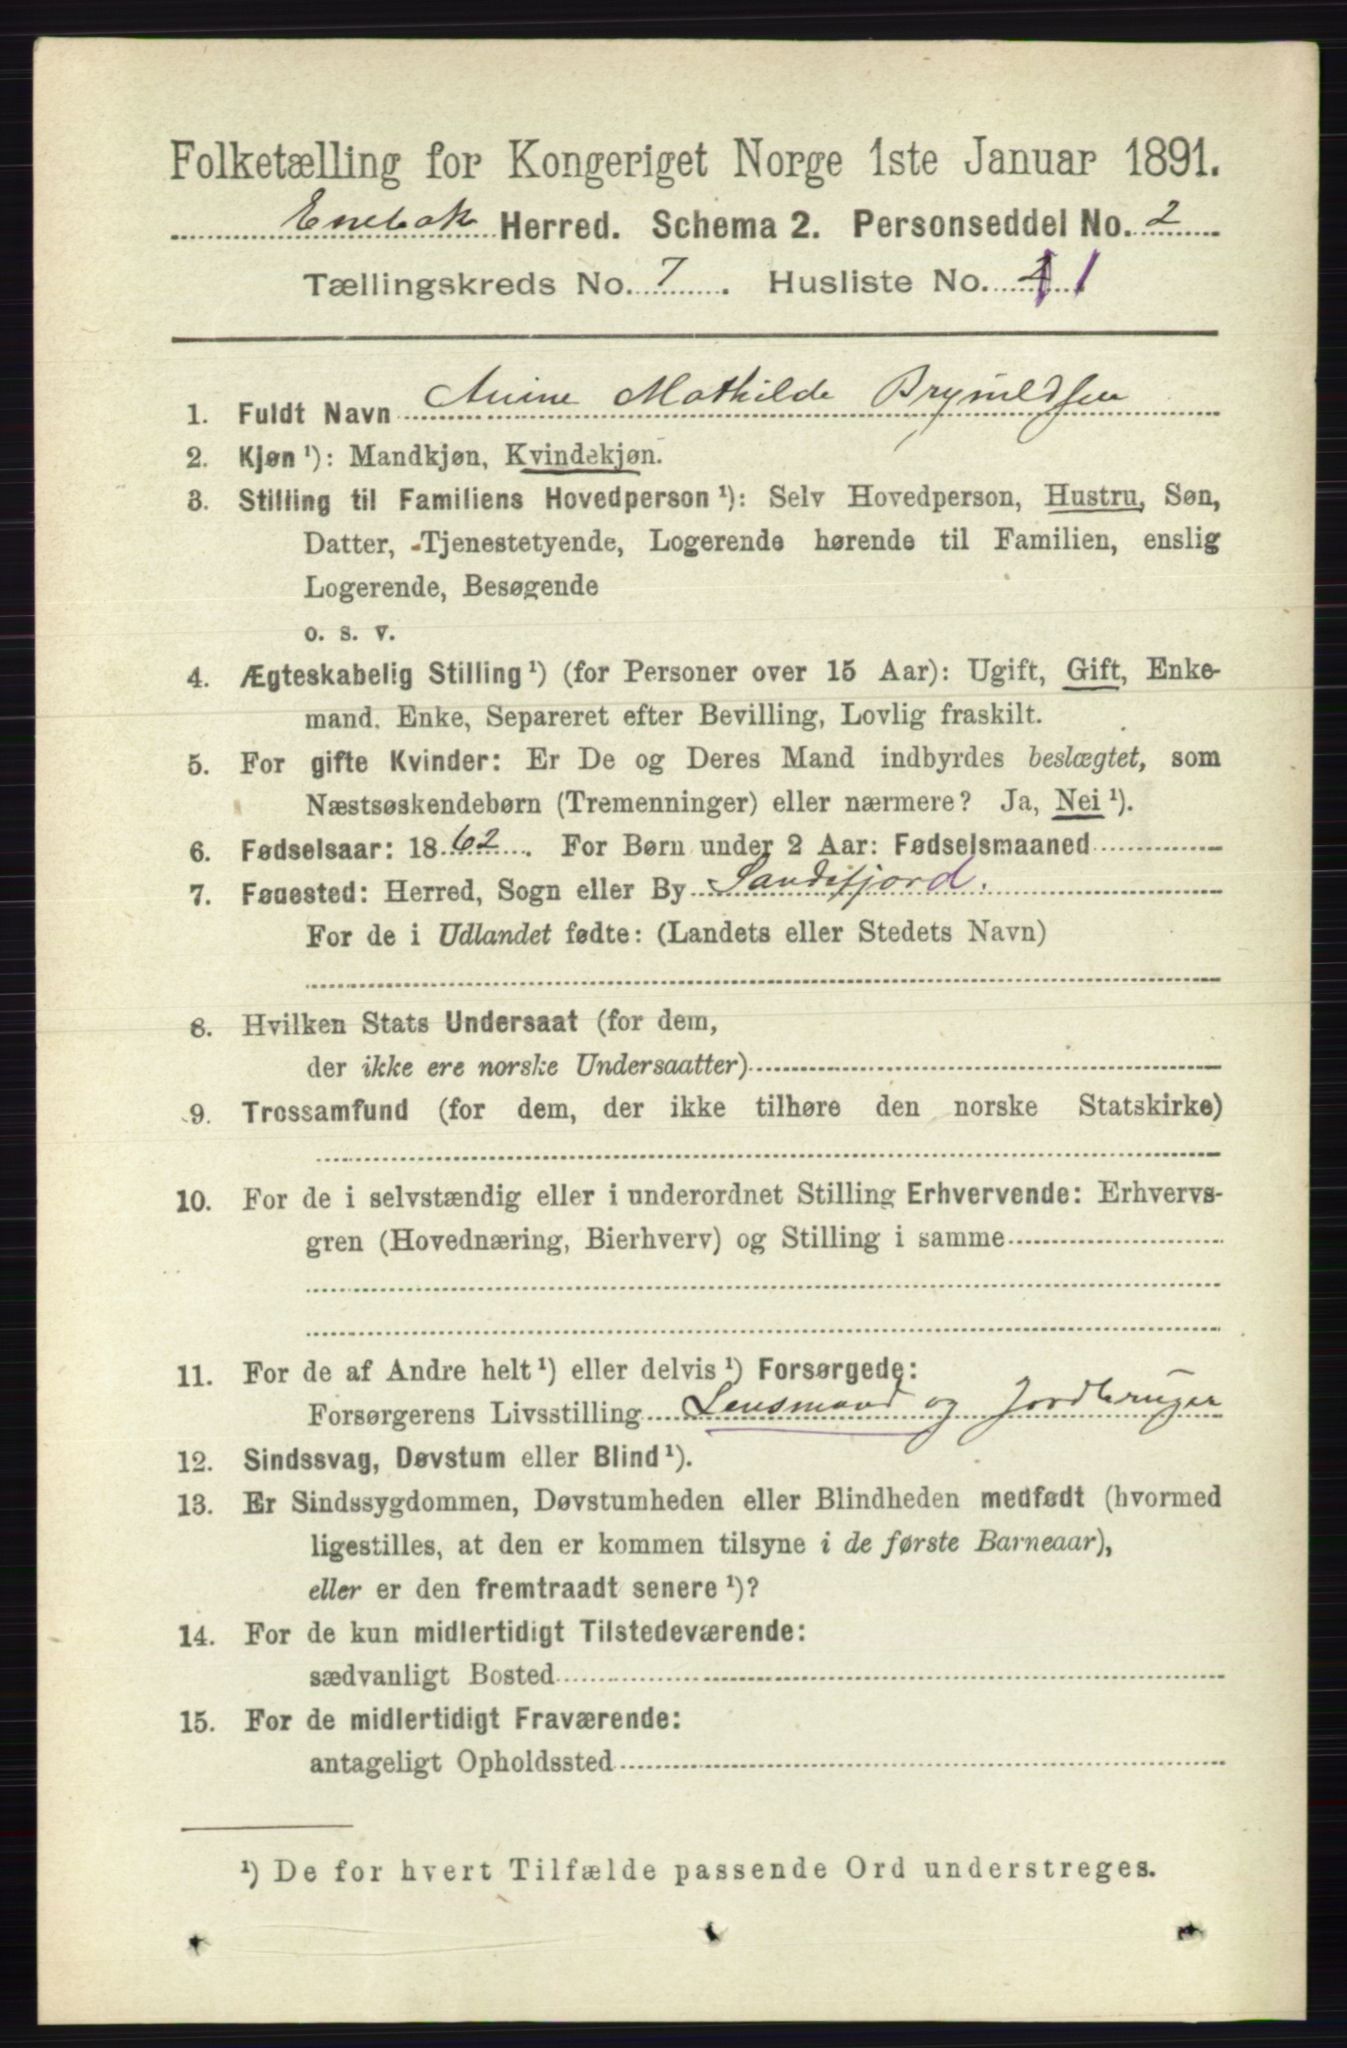 Folketælling for Kongeriget Norge 1ste Januar 1891.
Enebak Herred. Schema 2. Personseddel No. 2
Tællingskreds No. 7. Husliste No. 1
1. Fuldt Navn Anine Mathilde Brynildsen
2. Kjøn ¹): Mandkjøn, Kvindekjøn.
3. Stilling til Familiens Hovedperson ¹): Selv Hovedperson, Hustru, Søn,
Datter, Tjenestetyende, Logerende hørende til Familien, enslig
Logerende, Besøgende
o. s. v.
4. Ægteskabelig Stilling ¹) (for Personer over 15 Aar): Ugift, Gift, Enke-
mand. Enke, Separeret efter Bevilling, Lovlig fraskilt.
5. For gifte Kvinder: Er De og Deres Mand indbyrdes beslægtet, som
Næstsøskendebørn (Tremenninger) eller nærmere? Ja, Nei ¹).
6. Fødselsaar: 1862. For Børn under 2 Aar: Fødselsmaaned
7. Føuested: Herred, Sogn eller By Sandefjord.
For de i Udlandet fødte: (Landets eller Stedets Navn)
8. Hvilken Stats Undersaat (for dem,
der ikke ere norske Undersaatter)
9. Trossamfund (for dem, der ikke tilhøre den norske Statskirke)
10. For de i selvstændig eller i underordnet Stilling Erhvervende: Erhvervs-
gren (Hovednæring, Bierhverv) og Stilling i samme
11. For de af Andre helt ¹) eller delvis ¹) Forsørgede:
Forsørgerens Livsstilling Lensmand og Jordbruger
12. Sindssvag, Døvstum eller Blind ¹).
13. Er Sindssygdommen, Døvstumheden eller Blindheden medfødt (hvormed
ligestilles, at den er kommen tilsyne i de første Barneaar),
eller er den fremtraadt senere ¹)?
14. For de kun midlertidigt Tilstedeværende:
sædvanligt Bosted
15. For de midlertidigt Fraværende:
antageligt Opholdssted
¹) De for hvert Tilfælde passende Ord understreges.